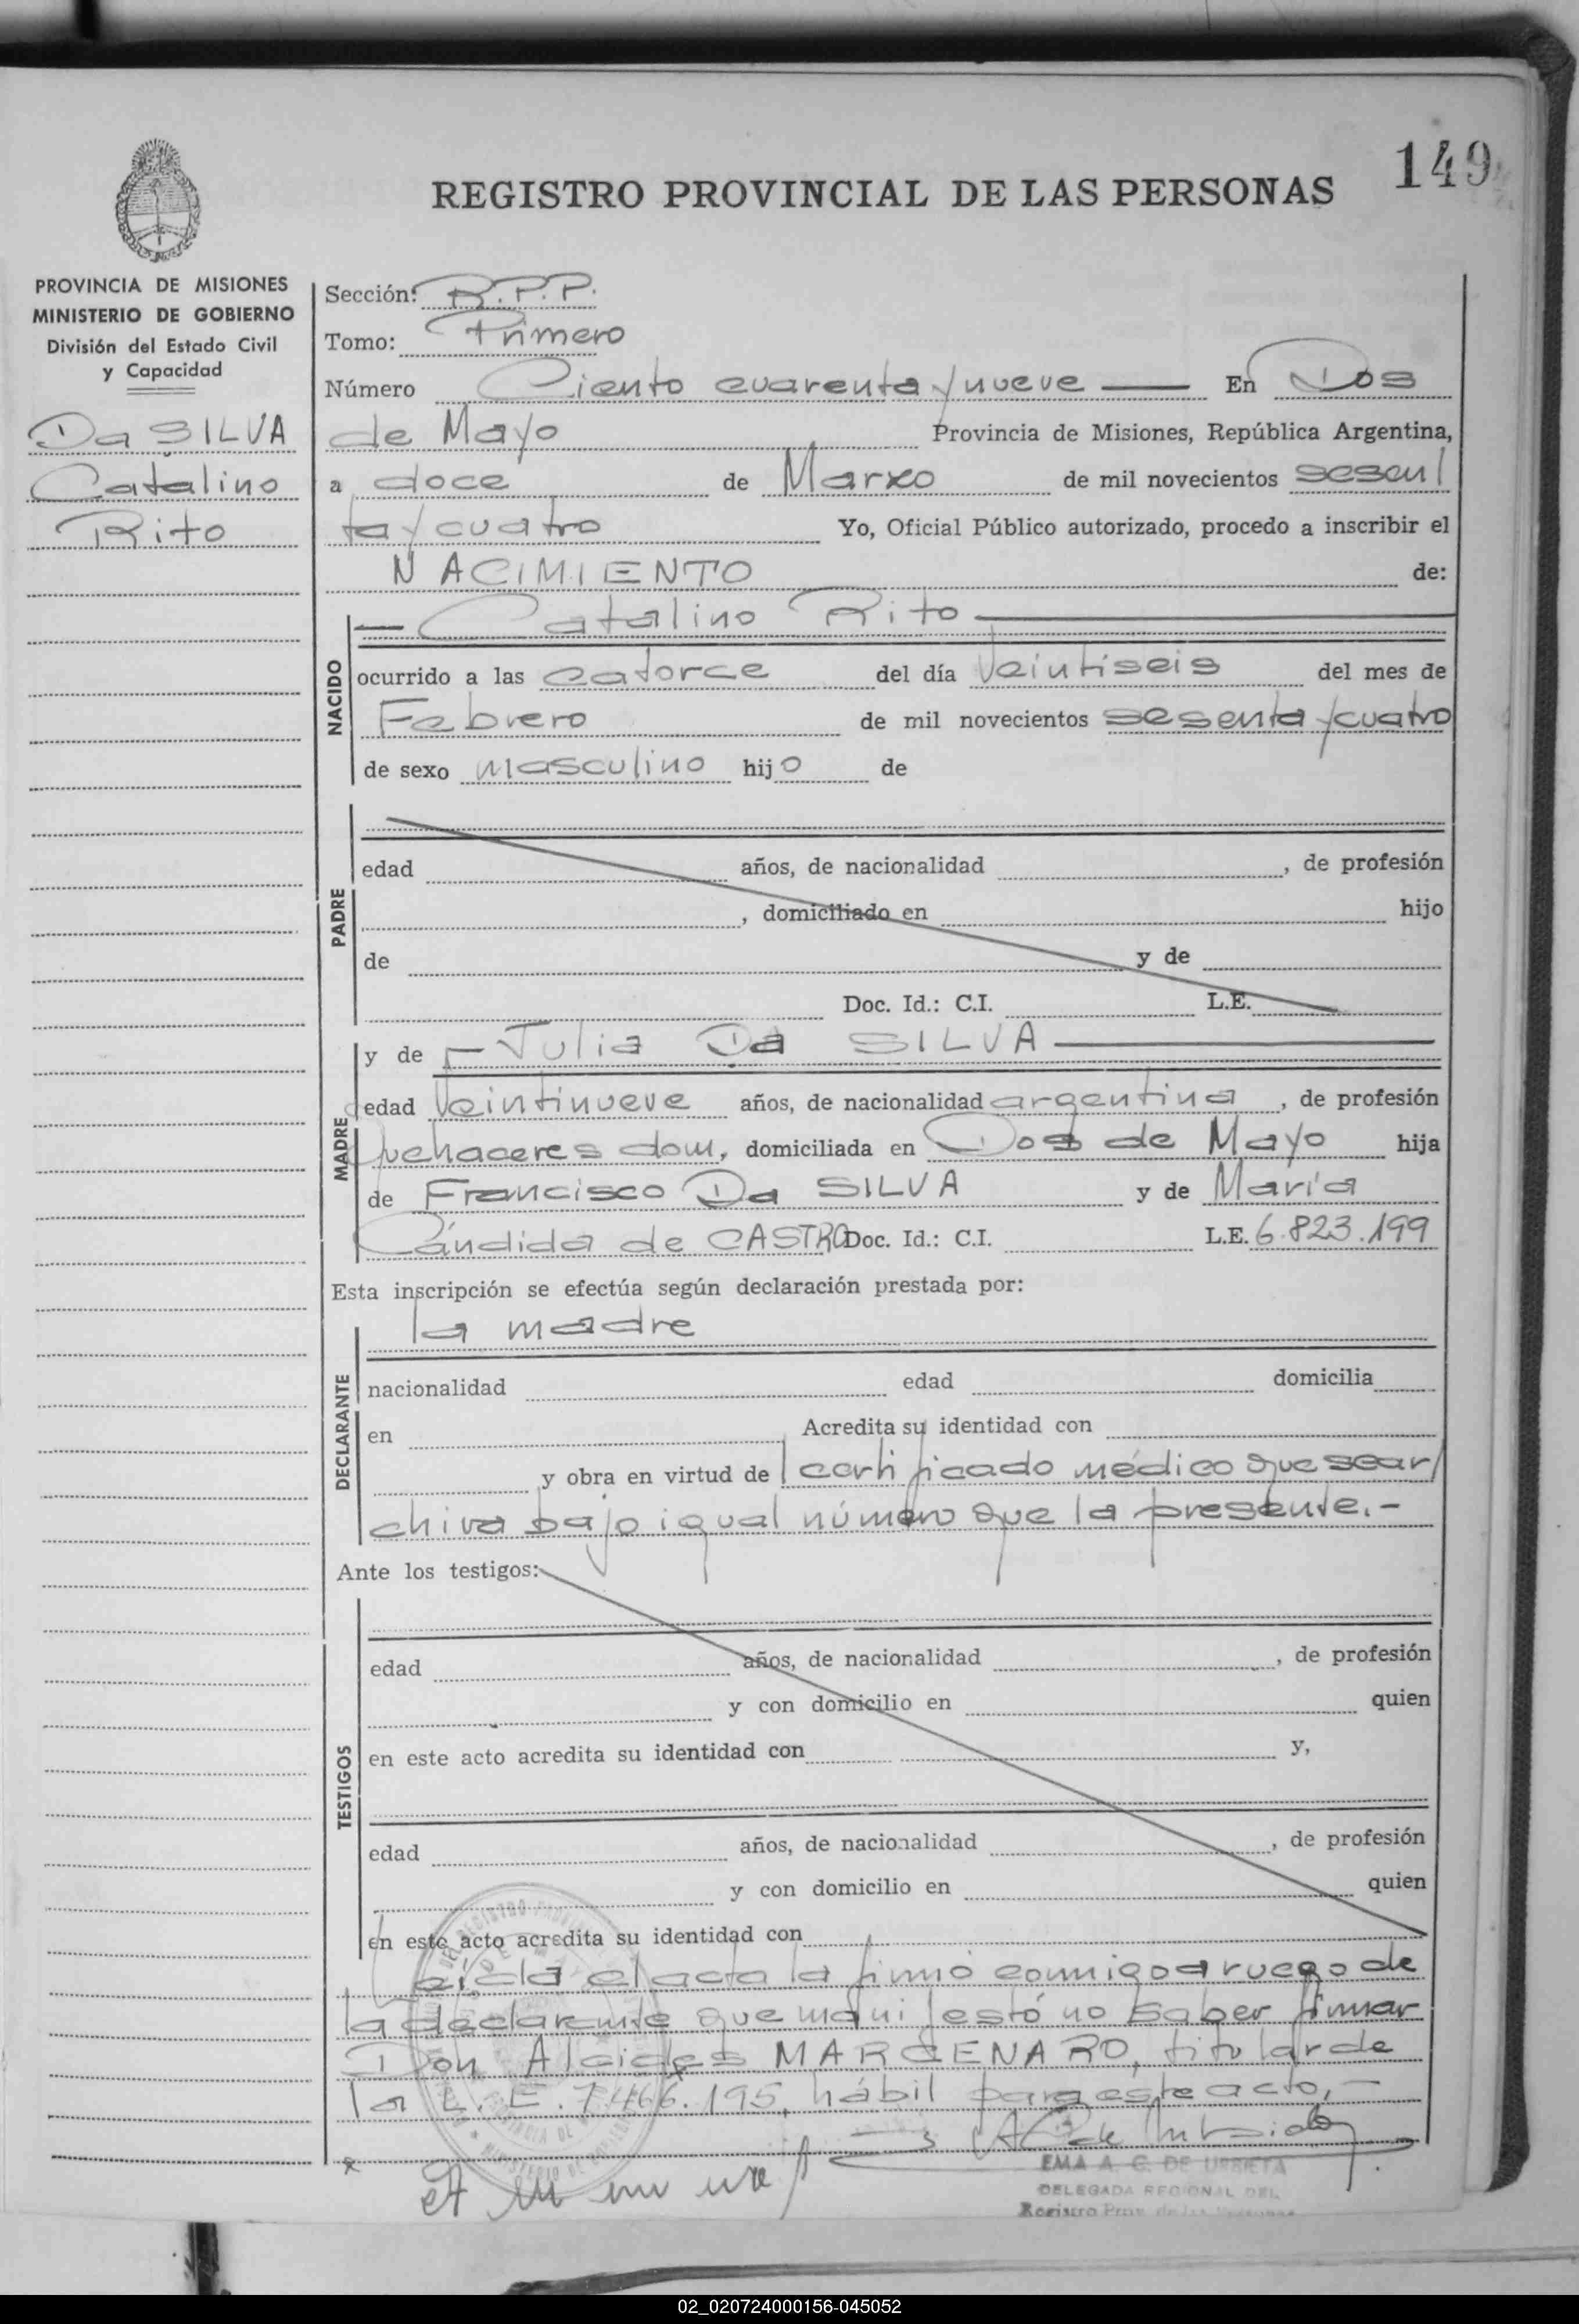 149
REGISTRO PROVINCIAL DE LAS PERSONAS
PROVINCIA DE MISIONES
MINISTERIO DE GOBIERNO
División del Estado Civil
y Capacidad
Da SILVA
Catalino
Rito
Sección: R.P.P.
Tomo: Primero
Número Ciento cuarenta y nueve En Dos
de Mayo Provincia de Misiones, República Argentina,
a doce de Marzo de mil novecientos sesen/
ta y cuatro Yo, Oficial Público autorizado, procedo a inscribir el
NACIMIENTO de:
NACIDO
— Catalino Rito —
ocurrido a las catorce del día Veintiseis del mes de
Febrero de mil novecientos sesenta y cuatro
de sexo masculino hijo de
PADRE
edad años, de nacionalidad , de profesión
, domiciliado en hijo
de y de
Doc. Id.: C.I. L.E.
MADRE
y de — Julia Da SILVA —
edad Veintinueve años, de nacionalidad argentina , de profesión
quehaceres dom, domiciliada en Dos de Mayo hija
de Francisco Da SILVA y de María
Cándida de CASTRO Doc. Id.: C.I. L.E. 6.823.199
Esta inscripción se efectúa según declaración prestada por:
DECLARANTE
la madre
nacionalidad edad domicilia
en Acredita su identidad con
y obra en virtud de certificado médico que se ar/
chiva bajo igual número que la presente.-
Ante los testigos:
TESTIGOS
edad años, de nacionalidad , de profesión
y con domicilio en quien
en este acto acredita su identidad con y,
edad años, de nacionalidad , de profesión
y con domicilio en quien
en este acto acredita su identidad con
Leída el acta la firmó conmigo a ruego de
la declarante que manifestó no saber firmar
Don Alcides MARCENARO, titular de
la L.E. 7.466.195, hábil para este acto,-
EMA A. C. DE URBIETA
DELEGADA REGIONAL DEL
Registro Prov. de las Personas
02_020724000156-045052